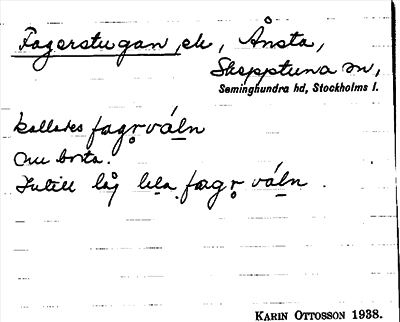 Fagerstugan, ek, Ånsta,
Skepptuna sn,
Seminghundra hd, Stockholms l.
kallades fagr̥vál̲n
nu borta.
Intill låj lila fagr̥ vál̲n.
KARIN OTTOSSON 1938.